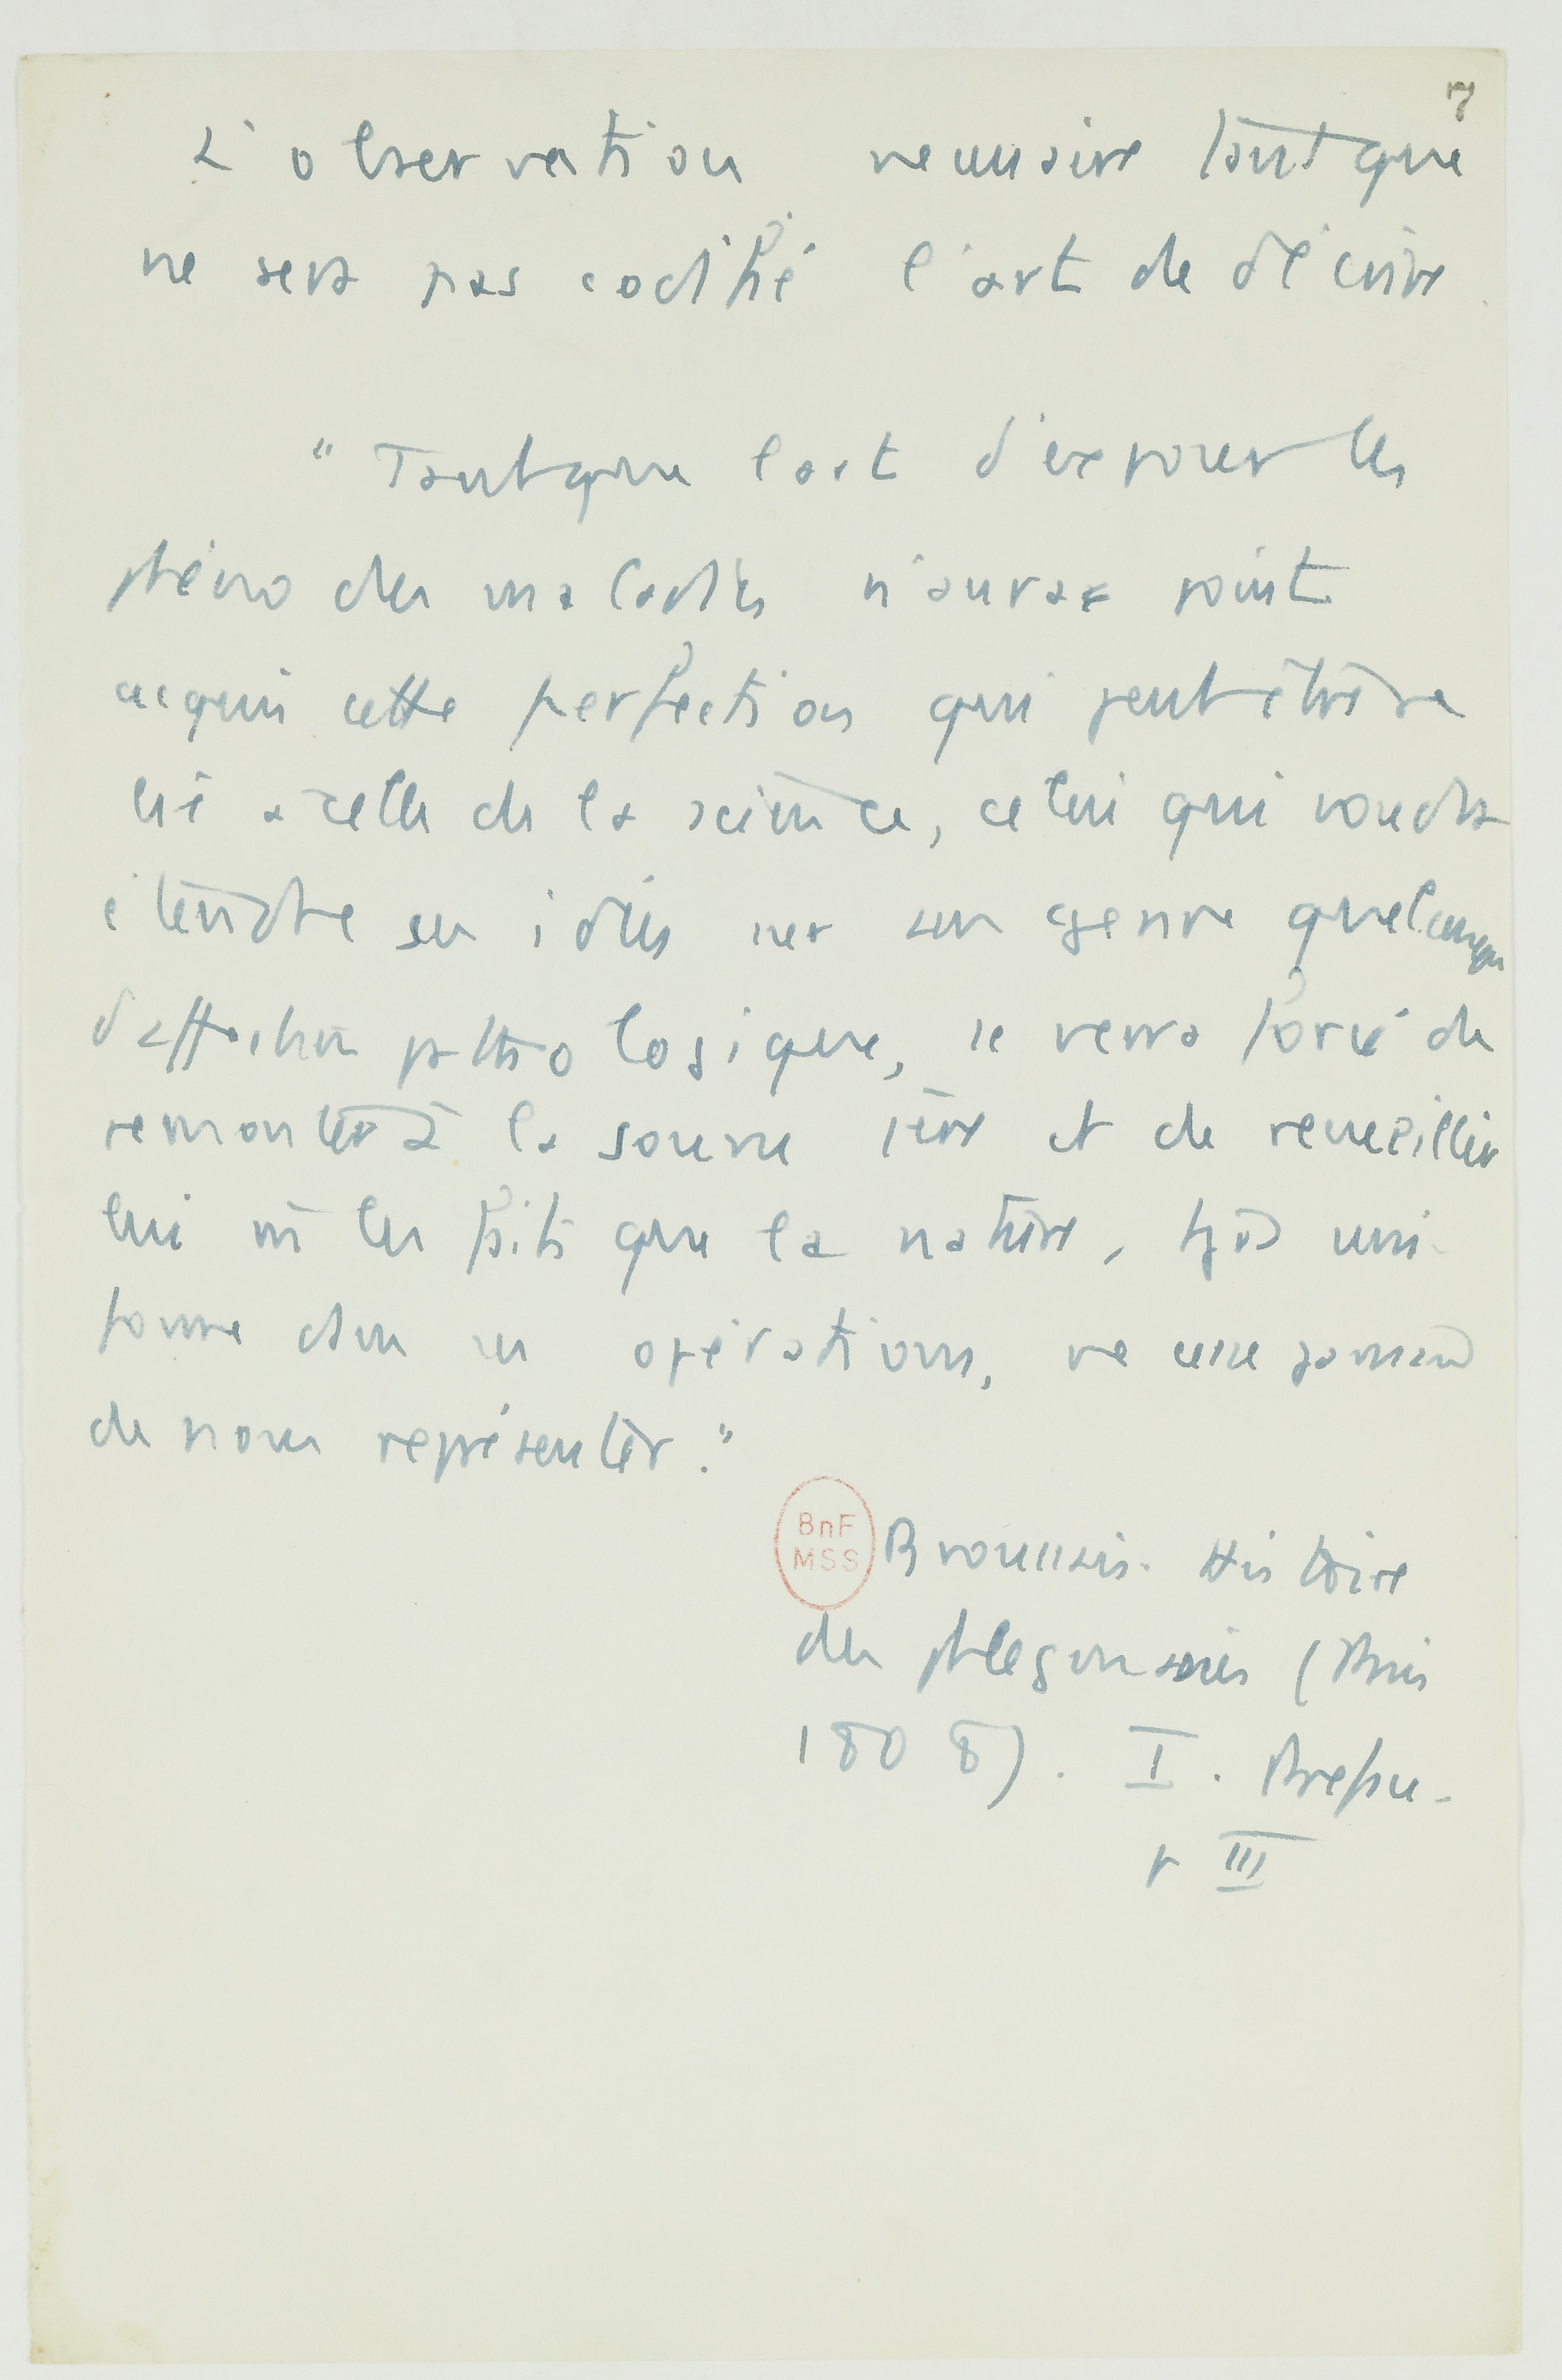 7
L'observation necessaire tant que
ne sera pas codifié l'art de décrire
"Tant que l'art d'exposer les
phéno des maladies n'aura point
acquis cette perfection qui peut être
lié a celle de la science, celui qui voudra
étendre ses idées sur un genre quelconque
d'affection pathologique, se verra forcé de
remonter à la source 1ère et de recueillir
lui m les faits que la nature, tjs uni
forme dans ses opérations, ne cesse jamais
de nous représenter."
BnF
MSS
Broussais. Histoire
des phlegmasies (Paris
1808). I. Préface.
p III